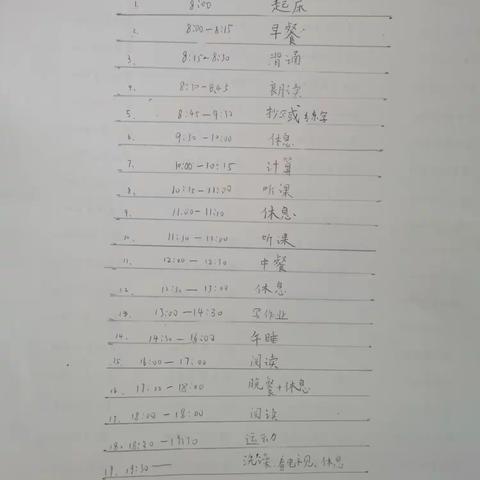 1. 8:00 起床
2. 8:00—8:15 早餐
3. 8:15—8:30 背诵
4. 8:30—8:45 朗读
5. 8:45—9:30 抄写或练字
6. 9:30—10:00 休息
7. 10:00—10:15 计算
8. 10:15—11:00 听课
9. 11:00—11:10 休息
10. 11:10—12:00 听课
11. 12:00—12:30 中餐
12. 12:30—13:00 休息
13. 13:00—14:30 写作业
14. 14:30—16:00 午睡
15. 16:00—17:00 阅读
16. 17:00—18:00 晚餐+休息
17. 18:00—18:00 阅读
18. 18:30—19:30 运动
19. 19:30— 洗澡、看电视、休息